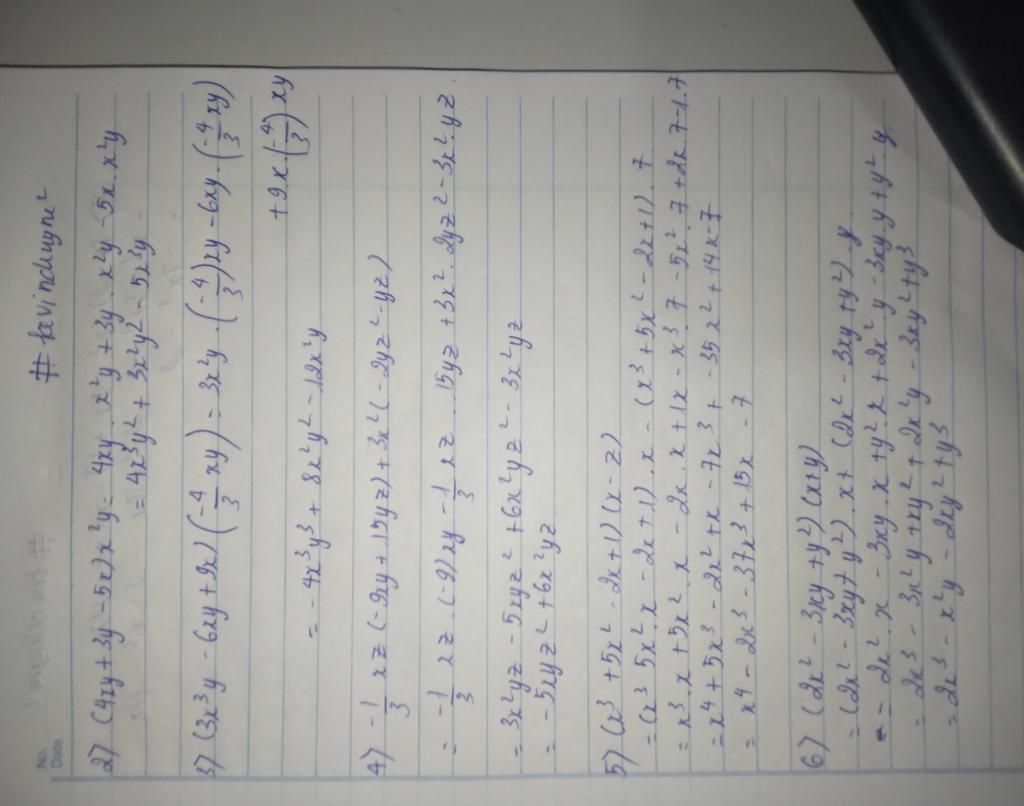 No.
Date
# kevinduyne²
2) (4xy + 3y - 5x) x²y = 4xy . x²y + 3y . x²y - 5x . x²y
= 4x³y² + 3x²y² - 5x³y
3) (3x³y - 6xy + 9x) (-4/3 xy) = 3x²y . (-4/3) xy - 6xy . (-4/3 xy)
+ 9x . (-4/3) xy
= - 4x³y³ + 8x²y² - 12x²y
4) -1/3 xz (-9xy + 15yz) + 3x² (-2yz² - yz)
= -1/3 xz . (-9) xy - 1/3 xz . 15yz + 3x² . 2yz² - 3x² . yz
= 3x²yz - 5xyz² + 6x²yz² - 3x²yz
= - 5xyz² + 6x²yz
5) (x³ + 5x² - 2x + 1) (x - z)
= (x³ 5x² . x - 2x + 1) . x - (x³ + 5x² - 2x + 1) . 7
= x³ . x + 5x² . x - 2x . x + 1x - x³ . 7 - 5x² . 7 + 2x . 7 - 1 . 7
= x4 + 5x³ - 2x² + x - 7x³ + - 35x² + 14x - 7
= x4 - 2x³ - 37x³ + 15x - 7
6) (2x² - 3xy + y²) (x + y)
= (2x² - 3xy + y²) . x + (2x² - 3xy + y²) . y
= 2x² . x - 3xy . x + y² . x + 2x² y - 3xy . y + y² . y
= 2x³ - 3x²y + xy² + 2x²y - 3xy² + y³
= 2x³ - x²y - 2xy² + y³